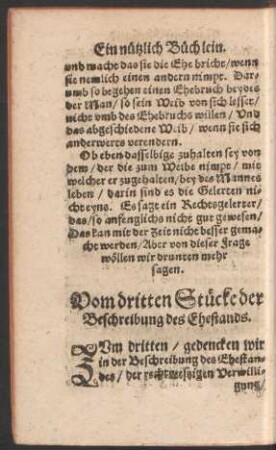 Ein nützlich Büchlein.
und macht das sie die Ehe bricht/ wenn
sie nemlich einen andern nimpt. Dar-
umb so begehen einen Ehebruch beydes
der Man/ so sein Weib von sich lesset/
nicht umb des Ehebruchs willen/ Und
das abgeschiedene Weib/ wenn sie sich
anderwerts verendern.
Ob eben dasselbige zuhalten sey von
dem/ der die zum Weibe nimpt/ mit
welcher er zugehalten/ bey des Mannes
leben/ darin sind es die Gelerten
nicht eyns. Es sagt ein Rechtsgelerter/
das/ so anfenglichs nicht gut gewesen/
Das kan mit der Zeit nicht besser gema-
cht werden/ Aber von dieser Frage
wöllen wir drunten mehr
sagen.
Vom dritten Stücke der
Beschreibung des Ehestands.
ZUm dritten/ gedencken wir
in der Beschreibung des Ehestan-
des/ der rechtmessigen Verwilli-
gung/